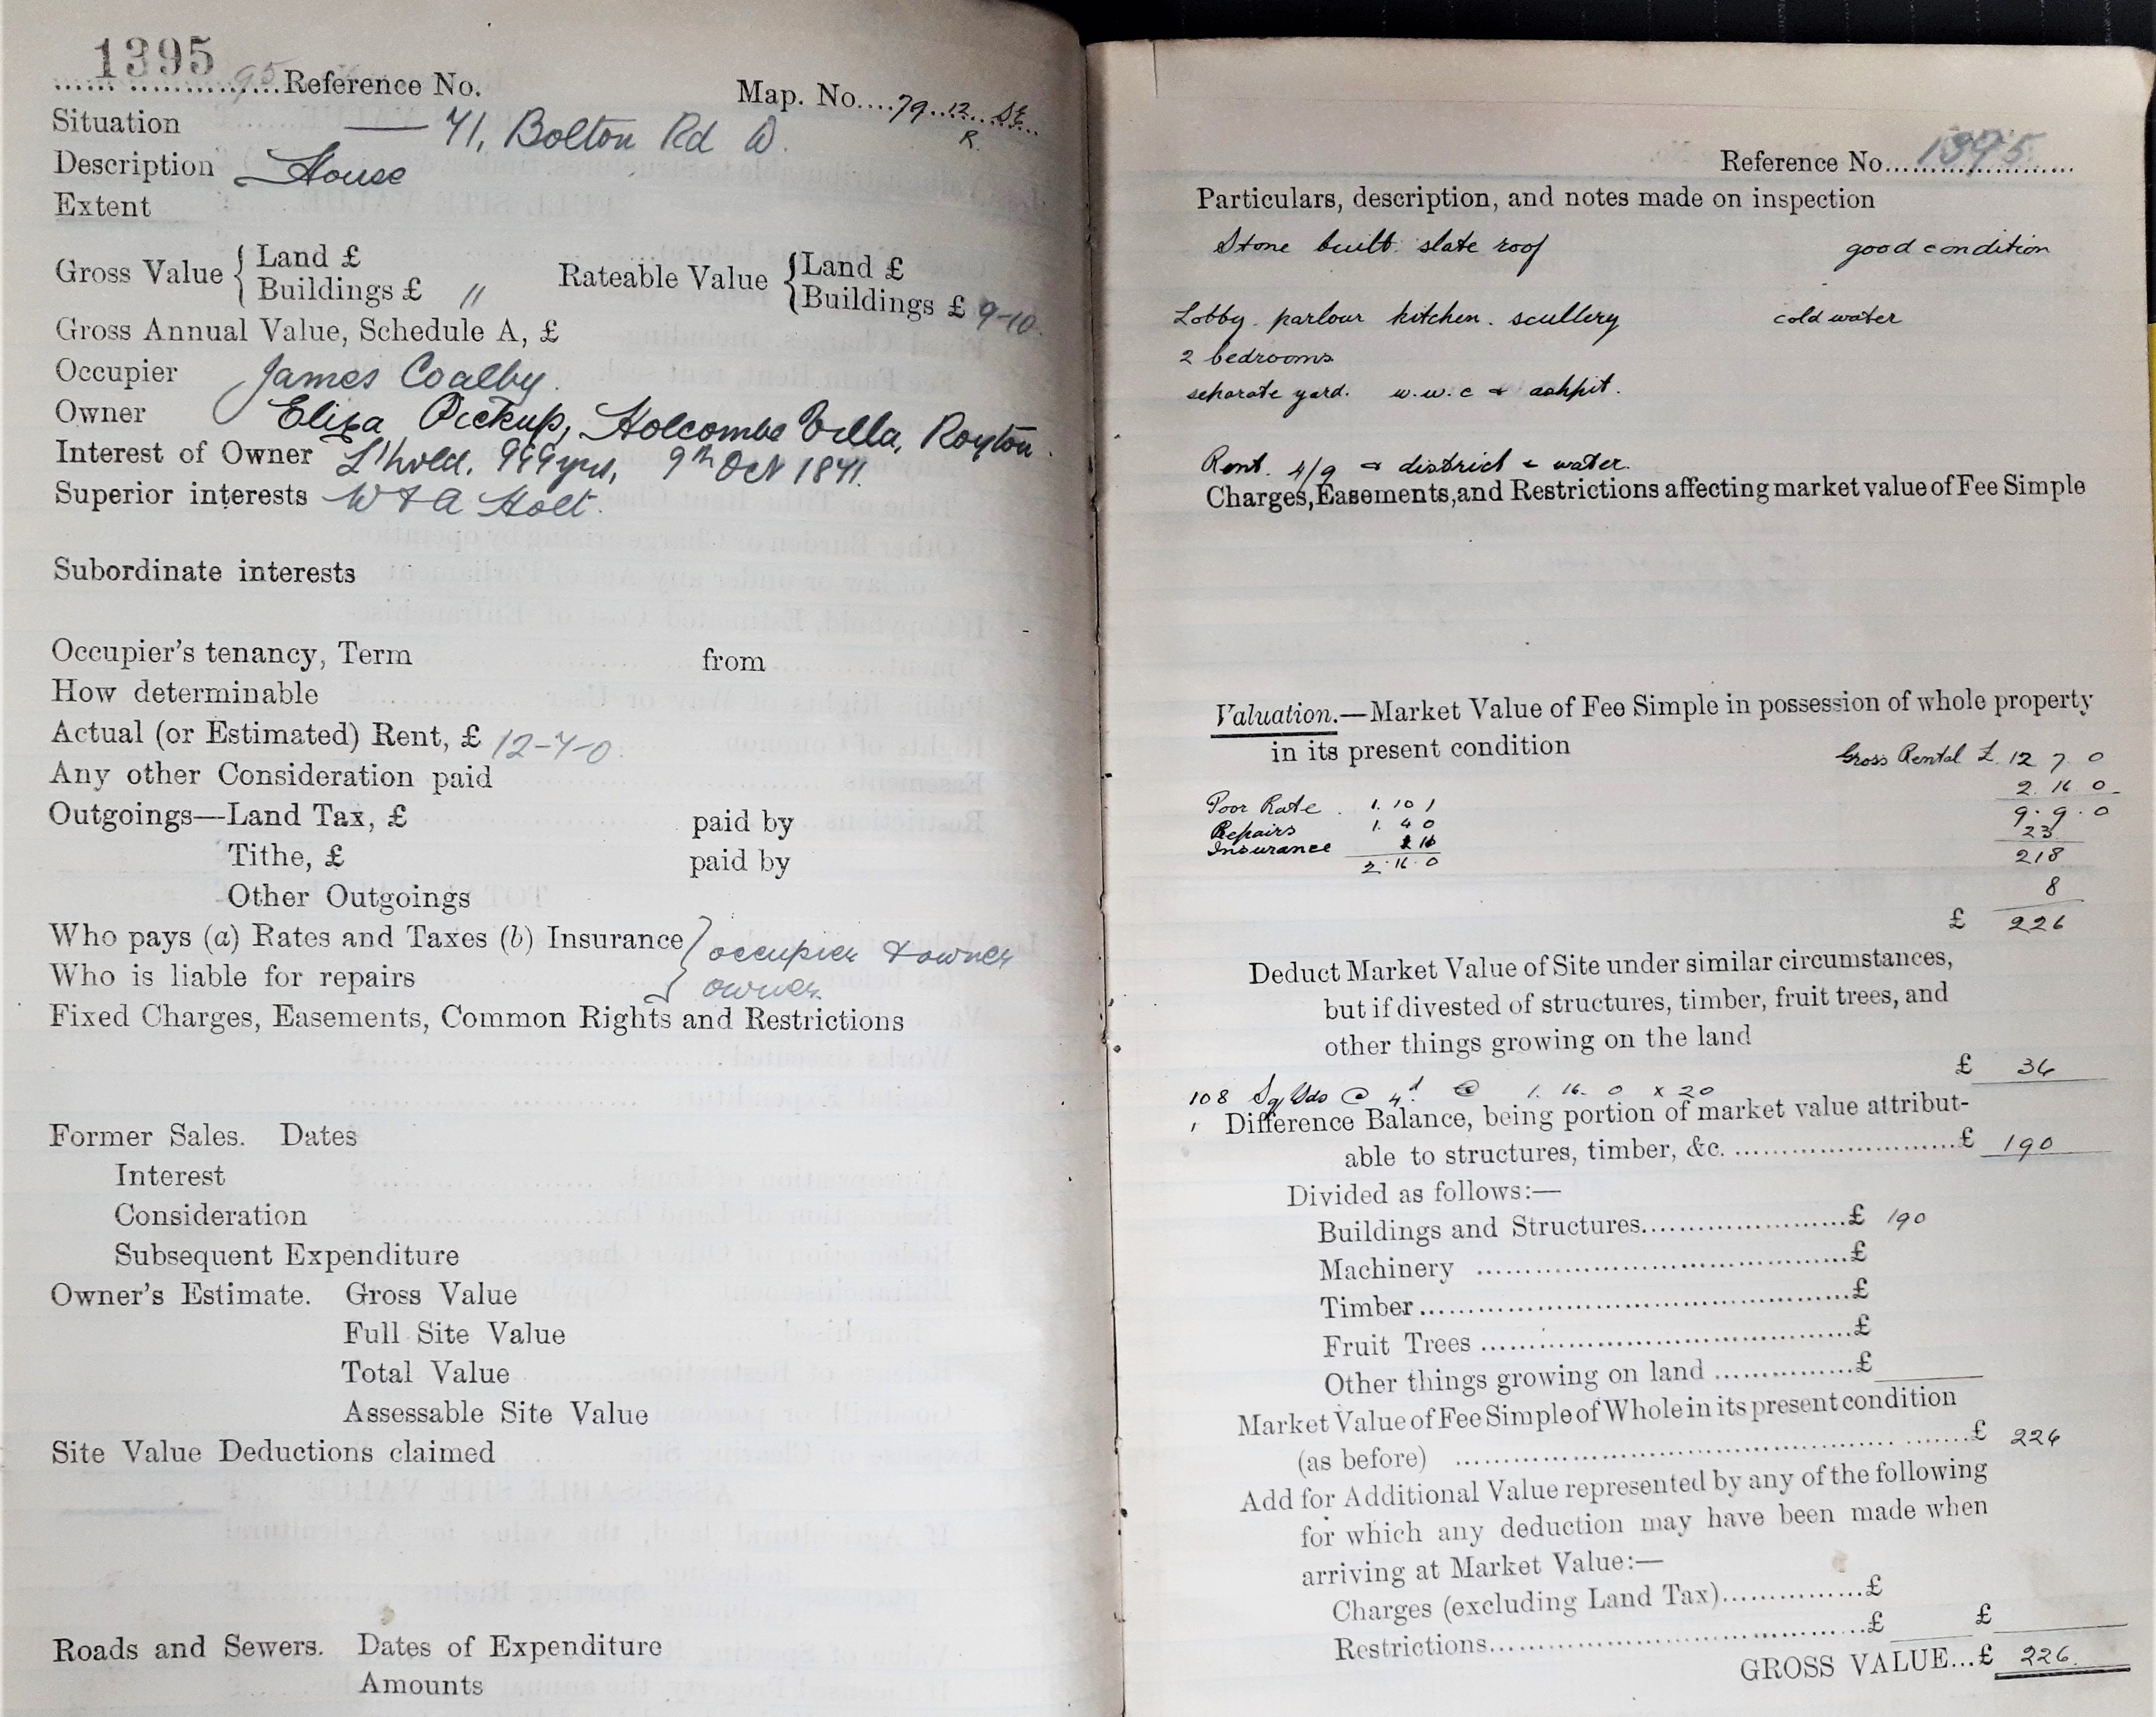 1395
Reference No.
Map. No....79..12..SE
R.
Situation — 71, Bolton Rd W.
Description House
Extent
Gross Value { Land £
Buildings £ 11
Rateable Value { Land £
Buildings £ 9-10
Gross Annual Value, Schedule A, £
Occupier James Coalby.
Owner Eliza Pickup, Holcombe Villa, Royton.
Interest of Owner L'hold. 999 yrs, 9th Oct 1871.
Superior interests W & A Holt.
Subordinate interests
Occupier's tenancy, Term from
How determinable
Actual (or Estimated) Rent, £ 12-7-0.
Any other Consideration paid
Outgoings—Land Tax, £ paid by
Tithe, £ paid by
Other Outgoings
Who pays (a) Rates and Taxes (b) Insurance } occupier & owner
Who is liable for repairs } owner.
Fixed Charges, Easements, Common Rights and Restrictions
Former Sales. Dates
Interest
Consideration
Subsequent Expenditure
Owner's Estimate. Gross Value
Full Site Value
Total Value
Assessable Site Value
Site Value Deductions claimed
Roads and Sewers. Dates of Expenditure
Amounts
Reference No....1395
Particulars, description, and notes made on inspection
Stone built. slate roof good condition
Lobby. parlour kitchen. scullery cold water
2 bedrooms
separate yard. w.w.c & ashpit.
Rent. 4/9 & district & water.
Charges, Easements, and Restrictions affecting market value of Fee Simple
Valuation.—Market Value of Fee Simple in possession of whole property
in its present condition
Gross Rental £ 12 7 0
2. 16 0
Poor Rate 1. 10 1
9. 9. 0
Repairs 1. 4 0
23
Insurance
2. 16. 0
218
8
£ 226
Deduct Market Value of Site under similar circumstances,
but if divested of structures, timber, fruit trees, and
other things growing on the land
£ 36
108 Sq Yds @ 4d @ 1. 16. 0 x 20
Difference Balance, being portion of market value attribut-
able to structures, timber, &c. ...£ 190
Divided as follows:—
Buildings and Structures...£ 190
Machinery ...£
Timber...£
Fruit Trees ...£
Other things growing on land ...£
Market Value of Fee Simple of Whole in its present condition
(as before) ...£ 226
Add for Additional Value represented by any of the following
for which any deduction may have been made when
arriving at Market Value:—
Charges (excluding Land Tax)...£
Restrictions...£ £
GROSS VALUE...£ 226.